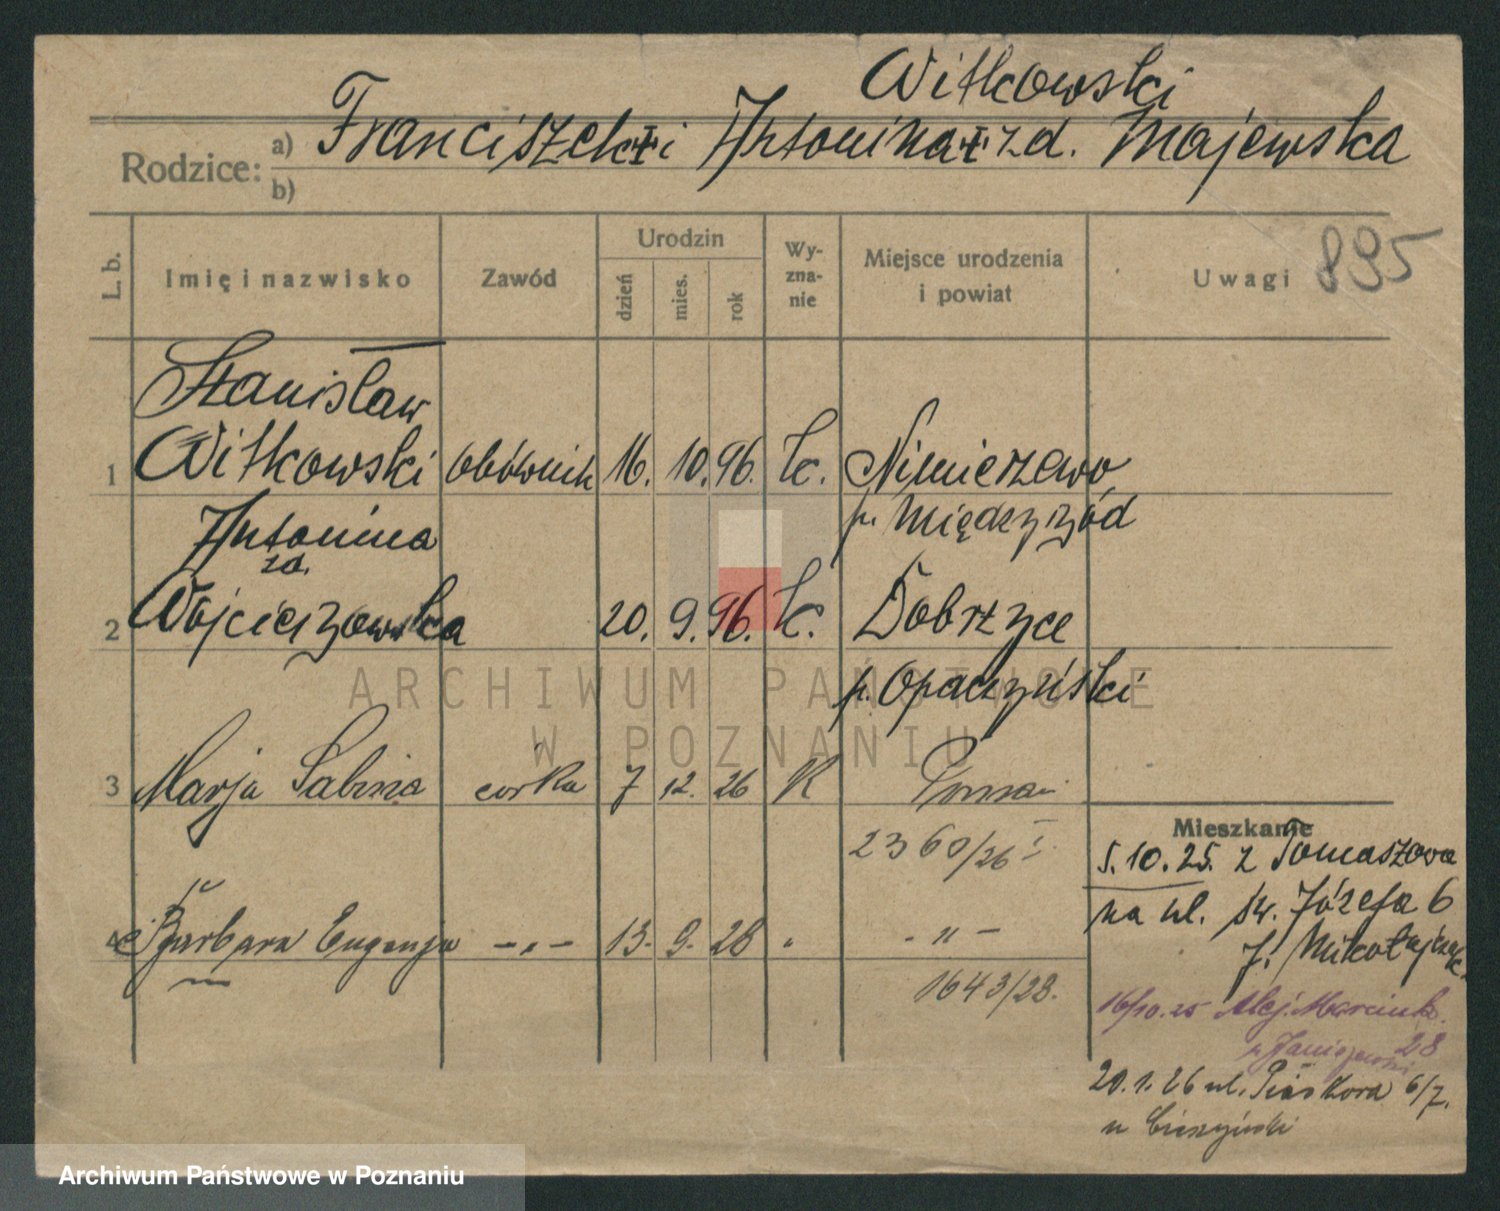 Witkowski
Rodzice: a) Franciszek † i Antonina † z d. Majewska
b)
L. b.
Imię i nazwisko
Zawód
Urodzin
dzień
mies.
rok
Wy-
zna-
nie
Miejsce urodzenia
i powiat
Uwagi 895
Stanisław
1 Witkowski obównik 16. 10. 96. k. Nimierzewo
p. Międzyżód
Antonina
zd.
2 Wojciezowska 20. 9. 96. k. Dobrzyce
p. Opaczyński
3 Marja Sabina córka 7 12. 26 K
2360/26 I
4 Barbara Eugenja -„- 13. 9. 28 „ - „ -
1643/28.
Mieszkanie
5.10.25. z Tomaszowa
na ul. Św. Józefa 6
J. Mikołajczak
16/10.25 Alej. Marcink.
28
20.1.26 ul. Piaskowa 6/7.
u Cieszyński
ARCHIWUM PAŃSTWOWE
W POZNANIU
Archiwum Państwowe w Poznaniu